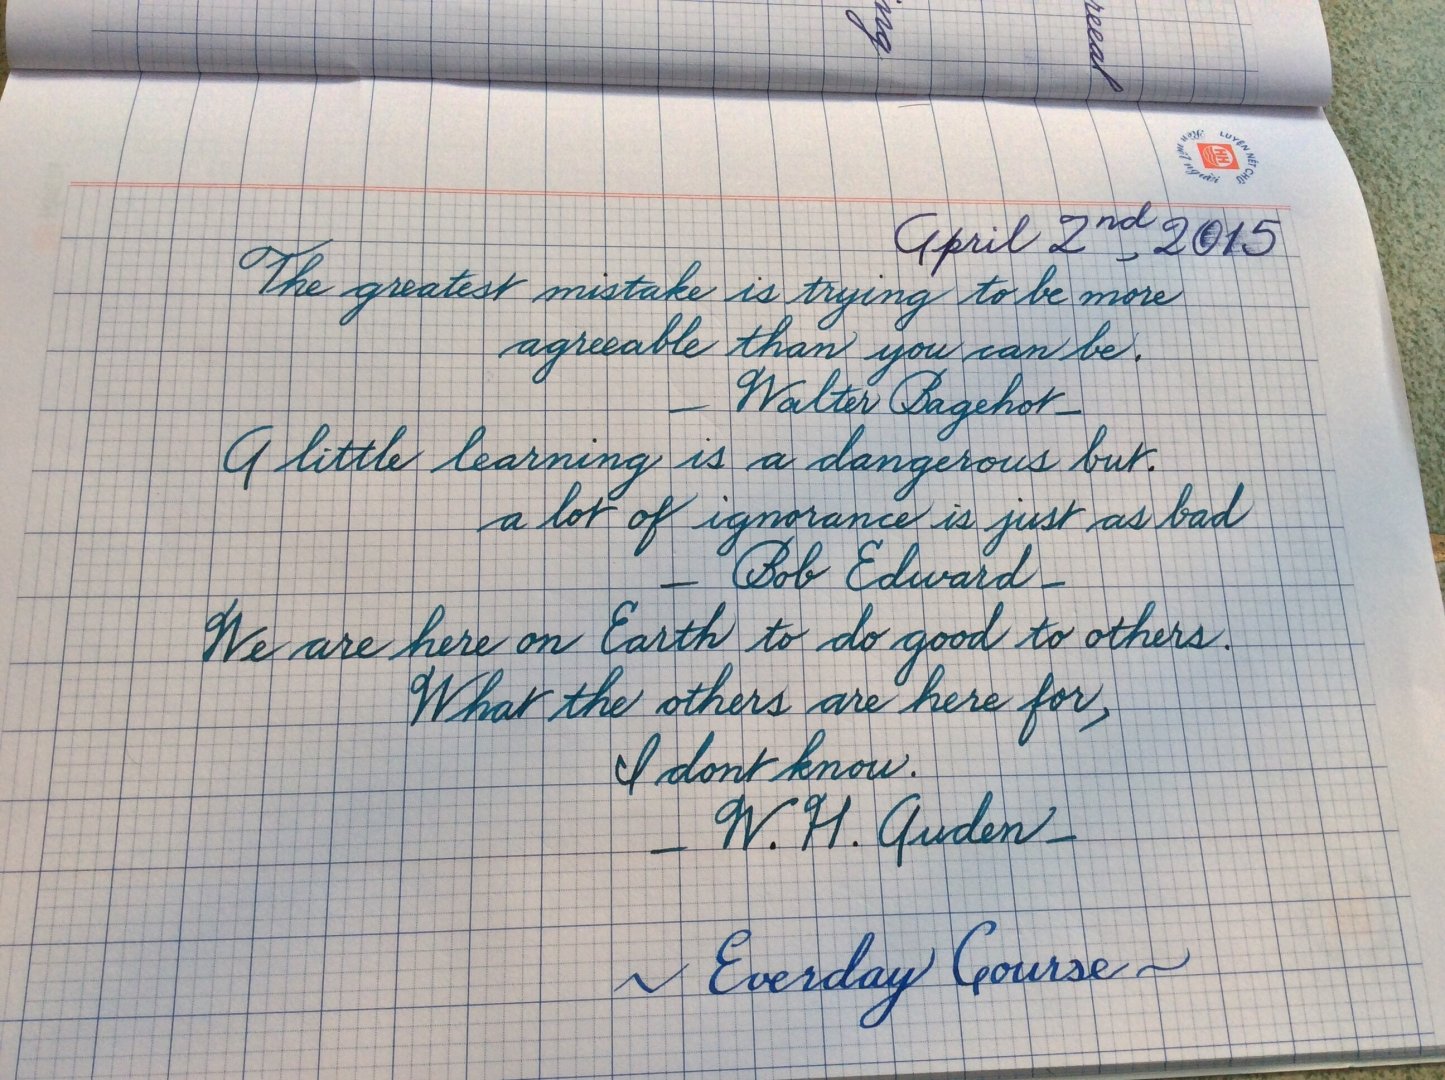 ing
reeal
LUYỆN NÉT CHỮ
Rèn nết người
April 2nd, 2015
The greatest mistake is trying to be more
agreeable than you can be.
_ Walter Bagehot _
A little learning is a dangerous but.
a lot of ignorance is just as bad
_ Bob Edward _
We are here on Earth to do good to others.
What the others are here for,
I dont know.
_ W. H. Auden _
~ Everday Course ~